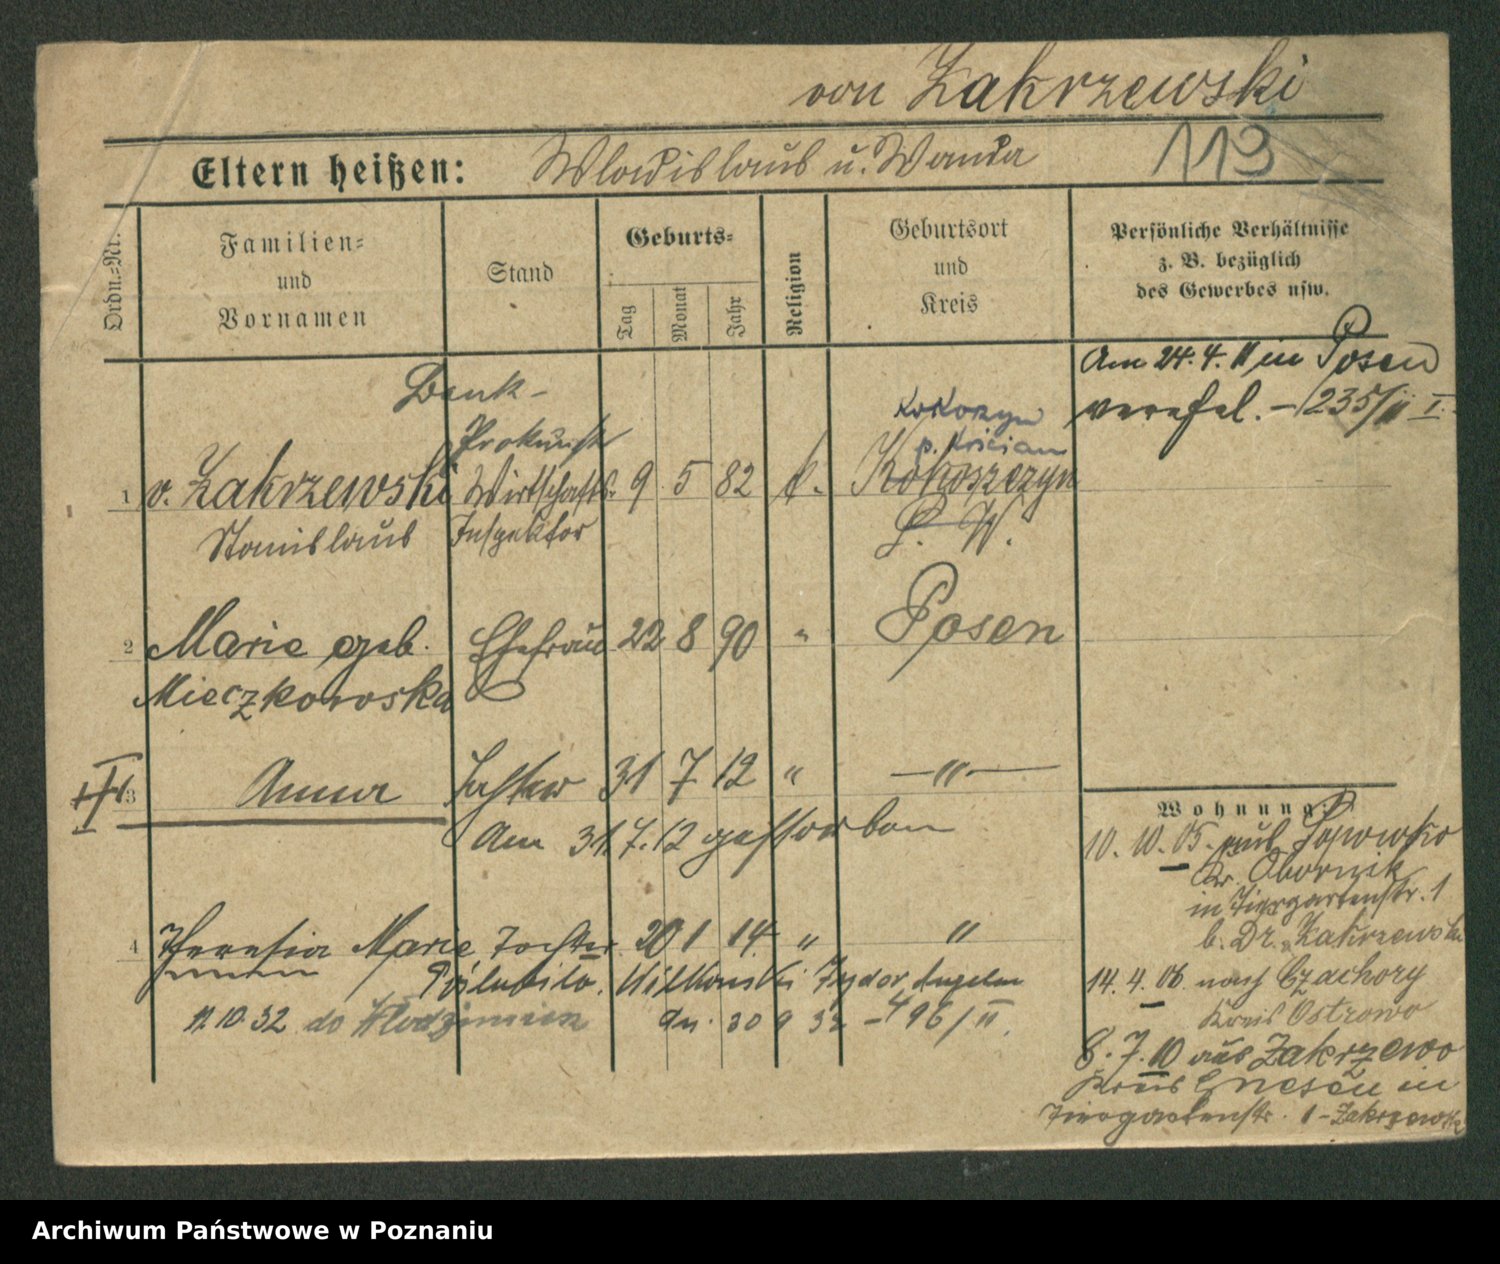 von Zakrzewski
Eltern heißen: Wladislaus u. Wanda 113
Ordn.-Nr.
Familien-
und
Vornamen
Stand
Geburts-
Tag
Monat
Jahr
Religion
Geburtsort
und
Kreis
Persönliche Verhältnisse
z. B. bezüglich
des Gewerbes usw.
Am 24. 4. 11 in Posen
verehel. – 1235/11 I.
Bank-
Prokurist
1 v. Zakrzewski Wirtschafts- 9 5 82 k. Kokoszczyn
Stanislaus Inspektor
P. W.
Kokorzyn
p. Kościan
2 Marie geb. Ehefrau 22 8 90 " Posen
Mieczkowska
3 Anna Tochter 31 7 12 " — " —
Am 31.7.12 gestorben
4 Theresia Marie Tochter 20 1 14 " "
Poślubiła
11.10.32 do
dn. 30 9 32 – 496/II.
Wohnung:
10. 10. 05. aus
Kr. Obornik
in Tiergartenstr. 1
b. Dr. Zakrzewski
14. 4. 06 nach Czachory
Kreis Ostrowo
8. 7. 10 aus Zakrzewo
Kreis Gnesen in
Tiergartenstr. 1 – Zakrzewski
Archiwum Państwowe w Poznaniu